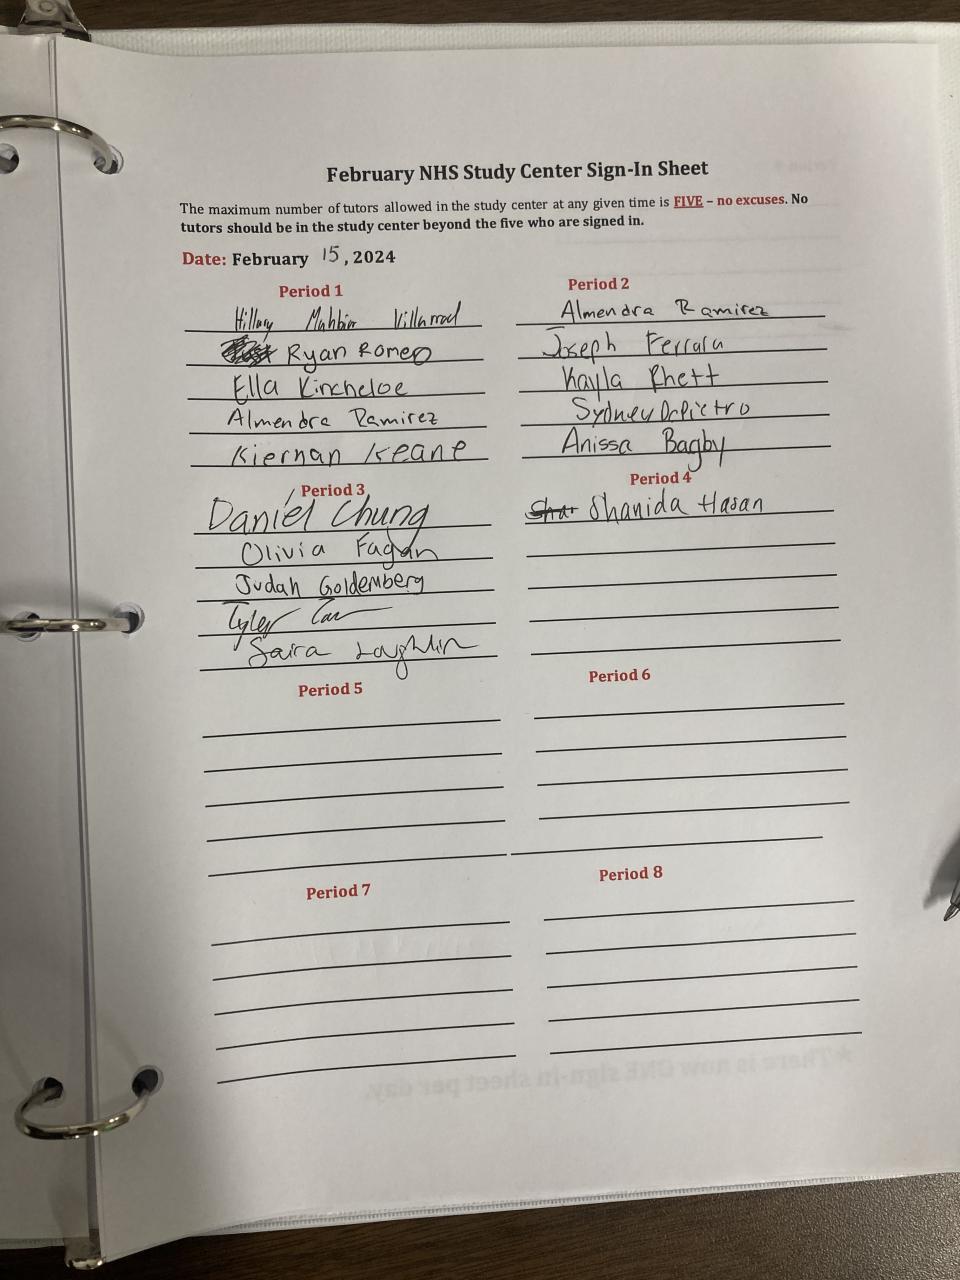 February NHS Study Center Sign-In Sheet
The maximum number of tutors allowed in the study center at any given time is FIVE – no excuses. No
tutors should be in the study center beyond the five who are signed in.
Date: February 15, 2024
Period 1
Hillary Mahbir Villarreal
Ryan Romeo
Ella Kincheloe
Almendra Ramirez
Kiernan Keane
Period 2
Almendra Ramirez
Joseph Ferrara
Kayla Rhett
Sydney DePietro
Anissa Bagby
Period 3
Daniel Chung
Olivia Fagan
Judah Goldemberg
Tyler
Saira Laughlin
Period 4
Shanida Hasan
Period 5
Period 6
Period 7
Period 8
*There is now ONE sign-in sheet per day.